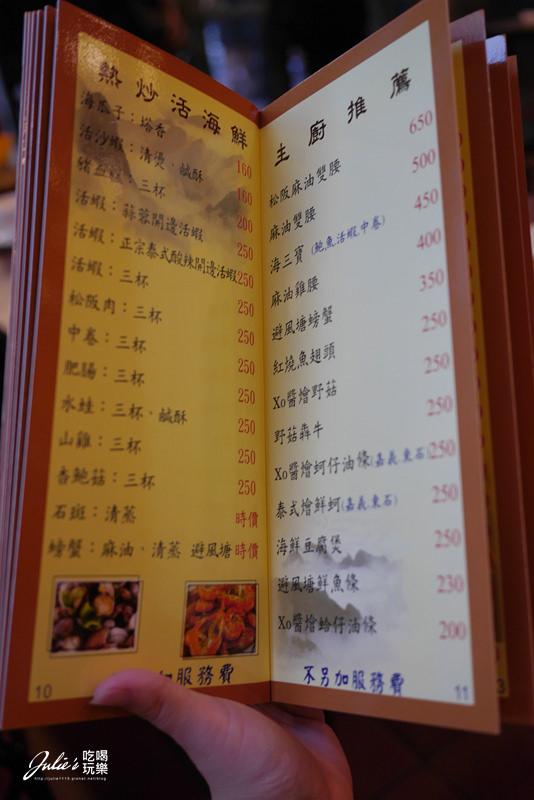 熱炒活海鮮
海瓜子：塔香 160
活沙蝦：清燙、鹹酥 160
豬血糕：三杯 200
活蝦：蒜蓉開邊活蝦 250
活蝦：正宗泰式酸辣開邊活蝦 250
活蝦：三杯 250
松阪肉：三杯 250
中卷：三杯 250
肥腸：三杯 250
水蛙：三杯、鹹酥 250
山雞：三杯 250
杏鮑菇：三杯 250
石斑：清蒸 時價
螃蟹：麻油、清蒸 避風塘 時價
加服務費
10
主廚推薦
松阪麻油雙腰 650
麻油雙腰 500
海三寶 (鮑魚活蝦中卷) 450
麻油雞腰 400
避風塘螃蟹 350
紅燒魚翅頭 250
Xo醬燴野菇 250
野菇犇牛 250
Xo醬燴蚵仔油條(嘉義東石) 250
泰式燴鮮蚵(嘉義東石) 250
海鮮豆腐煲 250
避風塘鮮魚條 230
Xo醬燴蛤仔油條 200
不另加服務費
11
Julie's 吃喝玩樂
http://julie1115.pixnet.net/blog